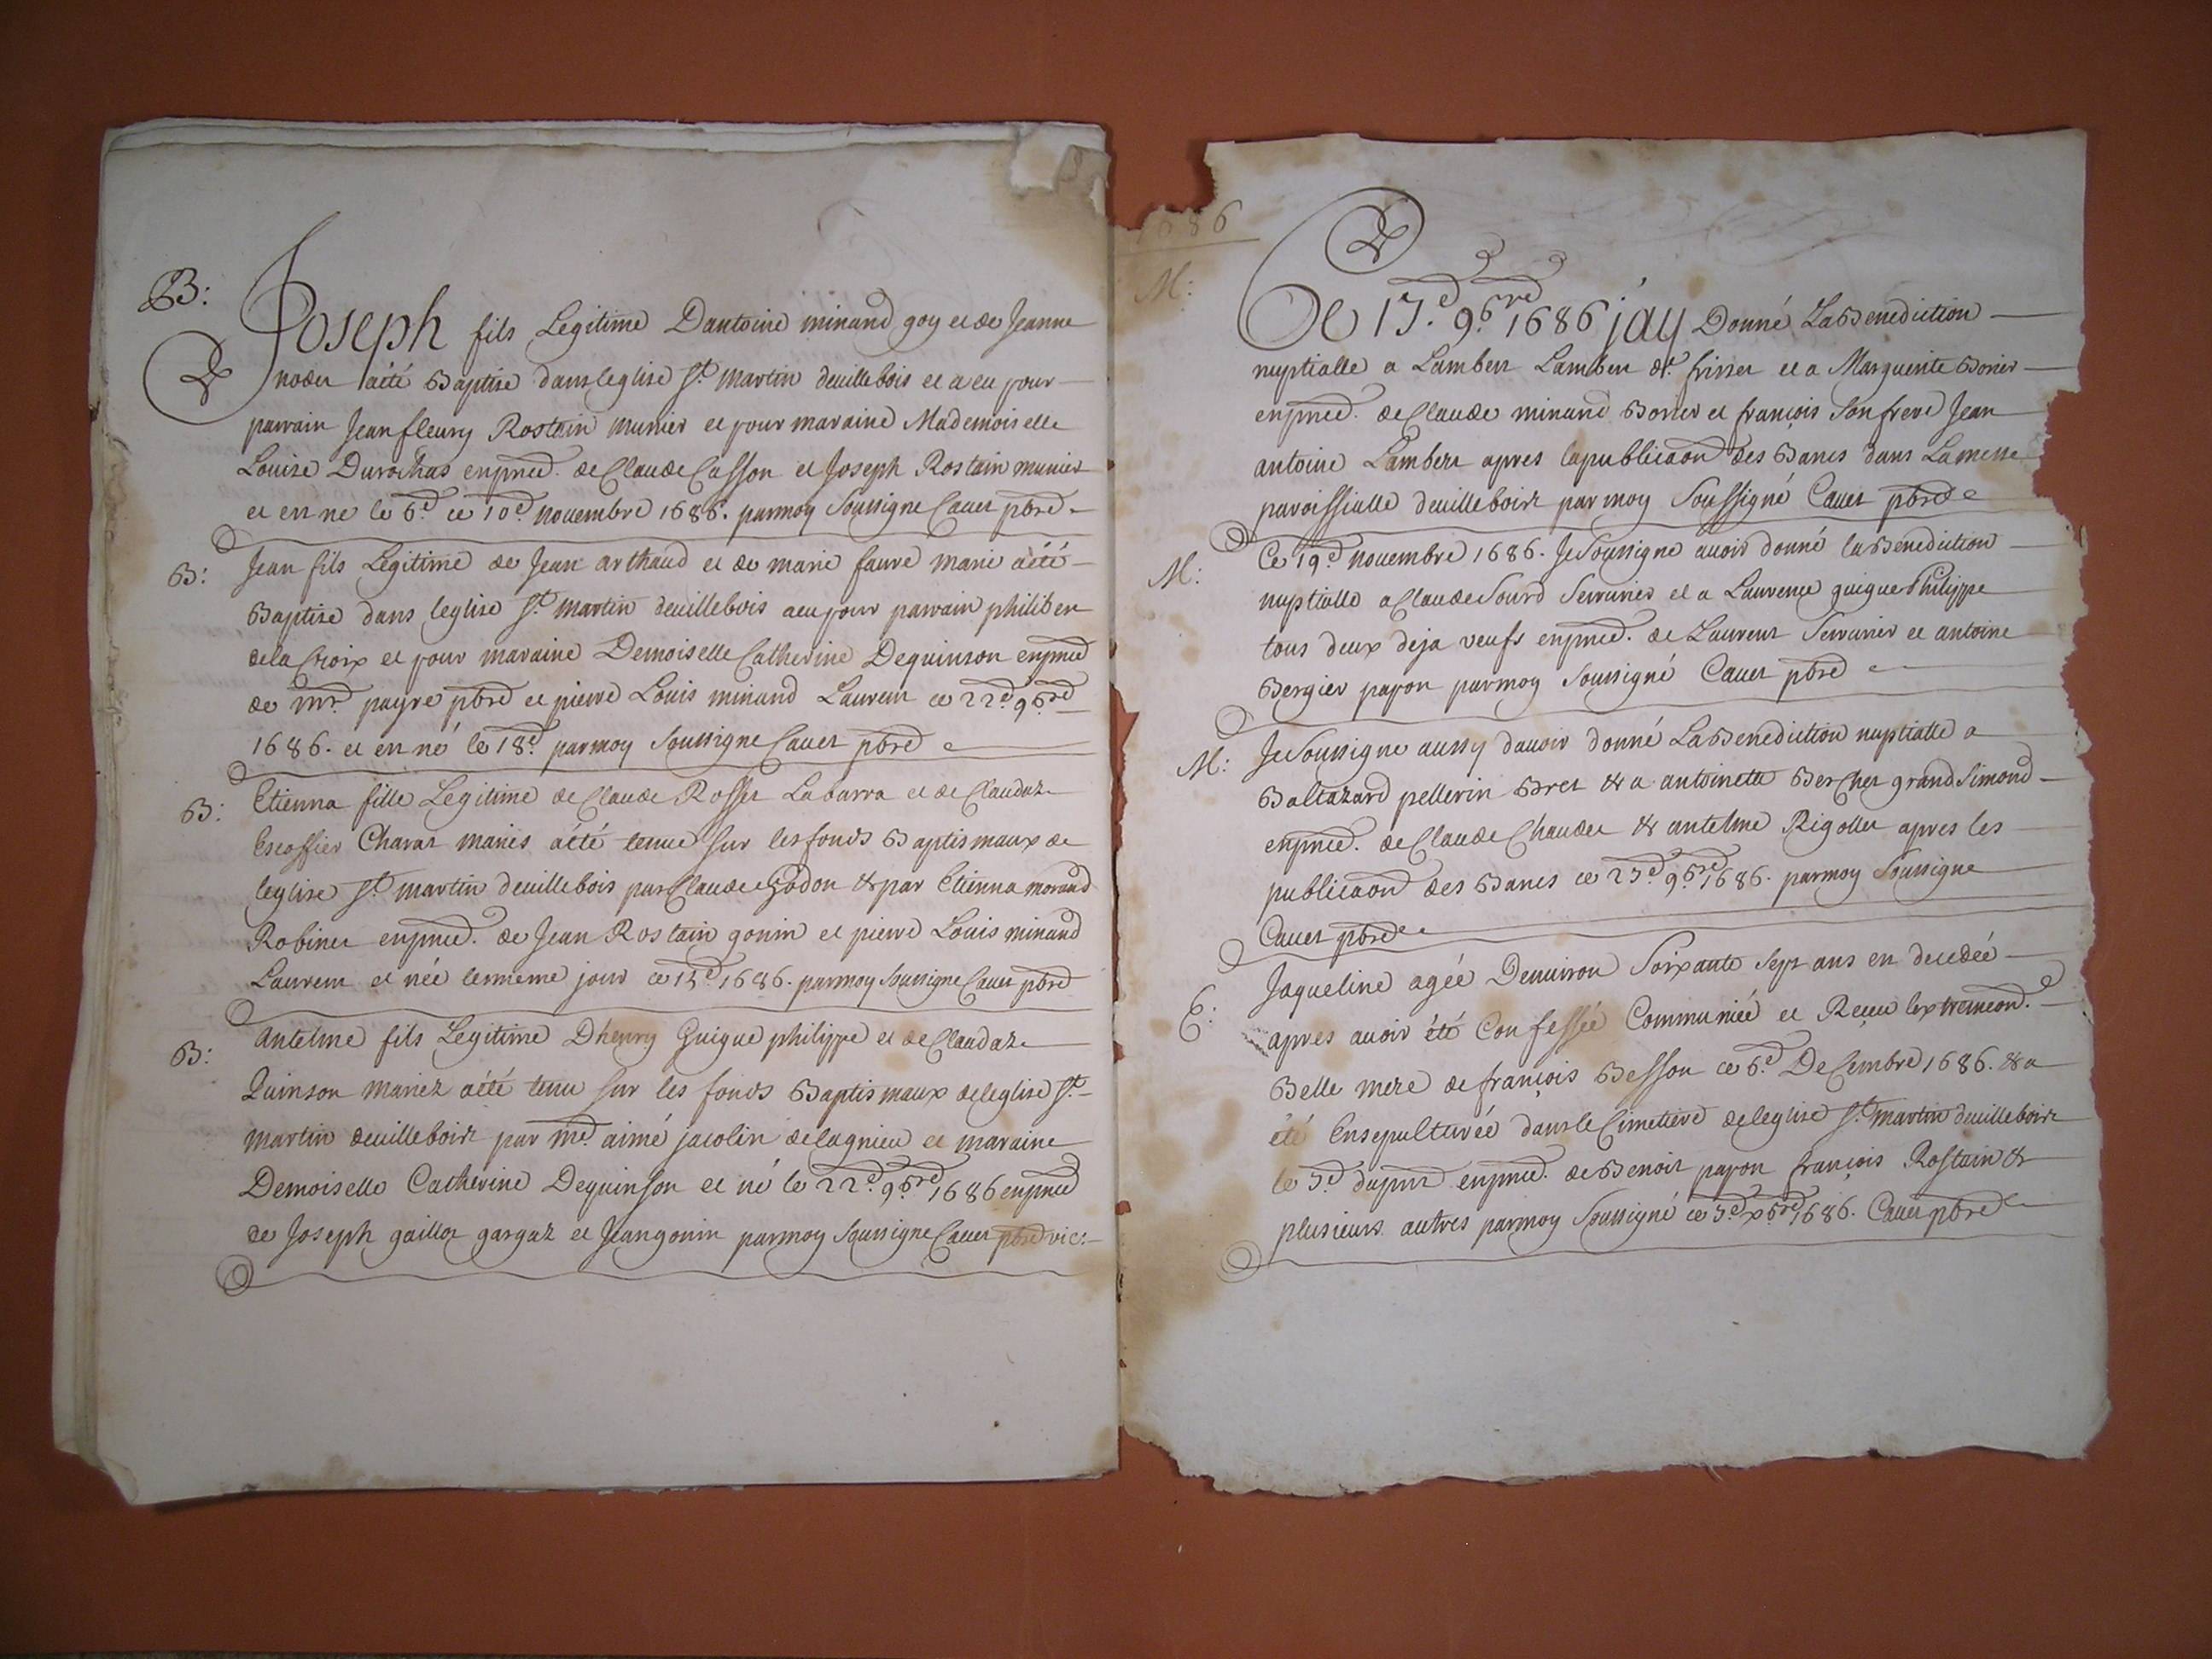 B:
Joseph fils Legitime Dantoine minand goy et de Jeanne
noder aété Baptise dans leglise St. martin deuillebois et a eu pour
parrain Jean fleury Rostain munier et pour maraine Mademoiselle
Louise Durochas enpnce. de Claude Casson et Joseph Rostain munier
et en ne le 6e. ce 10e. nouembre 1686. parmoy Soussigne Cauet pbre
B:
Jean fils Legitime de Jean arthaud et de marie faure marie aété
Baptise dans leglise St. martin deuillebois aeu pour parrain philiber
dela Croix et pour maraine Demoiselle Catherine Dequinson enpnce
de mr. payre pbre et pierre Louis minand Laurent ce 22e. 9bre
1686. et en né le 18e. parmoy Soussigne Cauet pbre
B:
Etienna fille Legitime de Claude Rosset Labarra et de Claudaz
Escoffier Charat mariés aété tenue sur les fonds Baptismaux de
leglise St. martin deuillebois par Claude Godon & par Etienna morand
Robinet enpnce. de Jean Rostain gonin et pierre Louis minand
Laurent et née lememe jour ce 15e 1686. parmoy Soussigne Cauet pbre
B:
Antelme fils Legitime Dhenry Guigue philippe et de Claudaz
Quinson mariez aété tenu sur les fonds Baptismaux deleglise St.
martin deuilleboix par me. aimé jacolin delagnieu et maraine
Demoiselle Catherine Dequinson et né le 22e. 9bre. 1686 enpnce
de Joseph gaillot gargaz et Jean gonin parmoy Soussigne Cauet pbre vic:
1686
M:
Ce 17e. 9bre 1686 jay Donné La Benediction
nuptialle a Lambert Lambert dt. frisset et a Marguerite Borier
enpnce. de Claude minand Borier et françois Son frere Jean
antoine Lambert apres lapublicaon des Bancs dans Lamesse
paroissialle deuilleboix par moy Soussigné Cauet pbre
M:
Ce 19e nouembre 1686. Je Soussigne auoir donné la Benediction
nuptialle a Claude Sourd Serrurier et a Laurence guigue Philippe
tous deux deja veufs enpnce. de Laurent Serrurier et antoine
Bergier papon parmoy Soussigné Cauet pbre
M:
Je Soussigne aussy dauoir donné La Benediction nuptialle a
Baltazard pellerin Bret & a antoinette Berchet grand Simond
enpnce. de Claude Chaudet & antelme Rigollet apres les
publicaon des Bancs ce 25e. 9bre 1686. parmoy Soussigne
Cauet pbre
E:
Jaqueline agée Denuiron Soixante Sept ans en decedée
apres auoir été Confessée Communiée et Receu lextremeond.
Belle mere de françois Besson ce 6e. Decembre 1686. & a
été Ensepulturée dans le Cimetiere deleglise St. martin deuilleboix
le 7e duput enpnce. de Benoit papon françois Rostain &
plusieurs autres parmoy Soussigné ce 7e xbre 1686. Cauet pbre